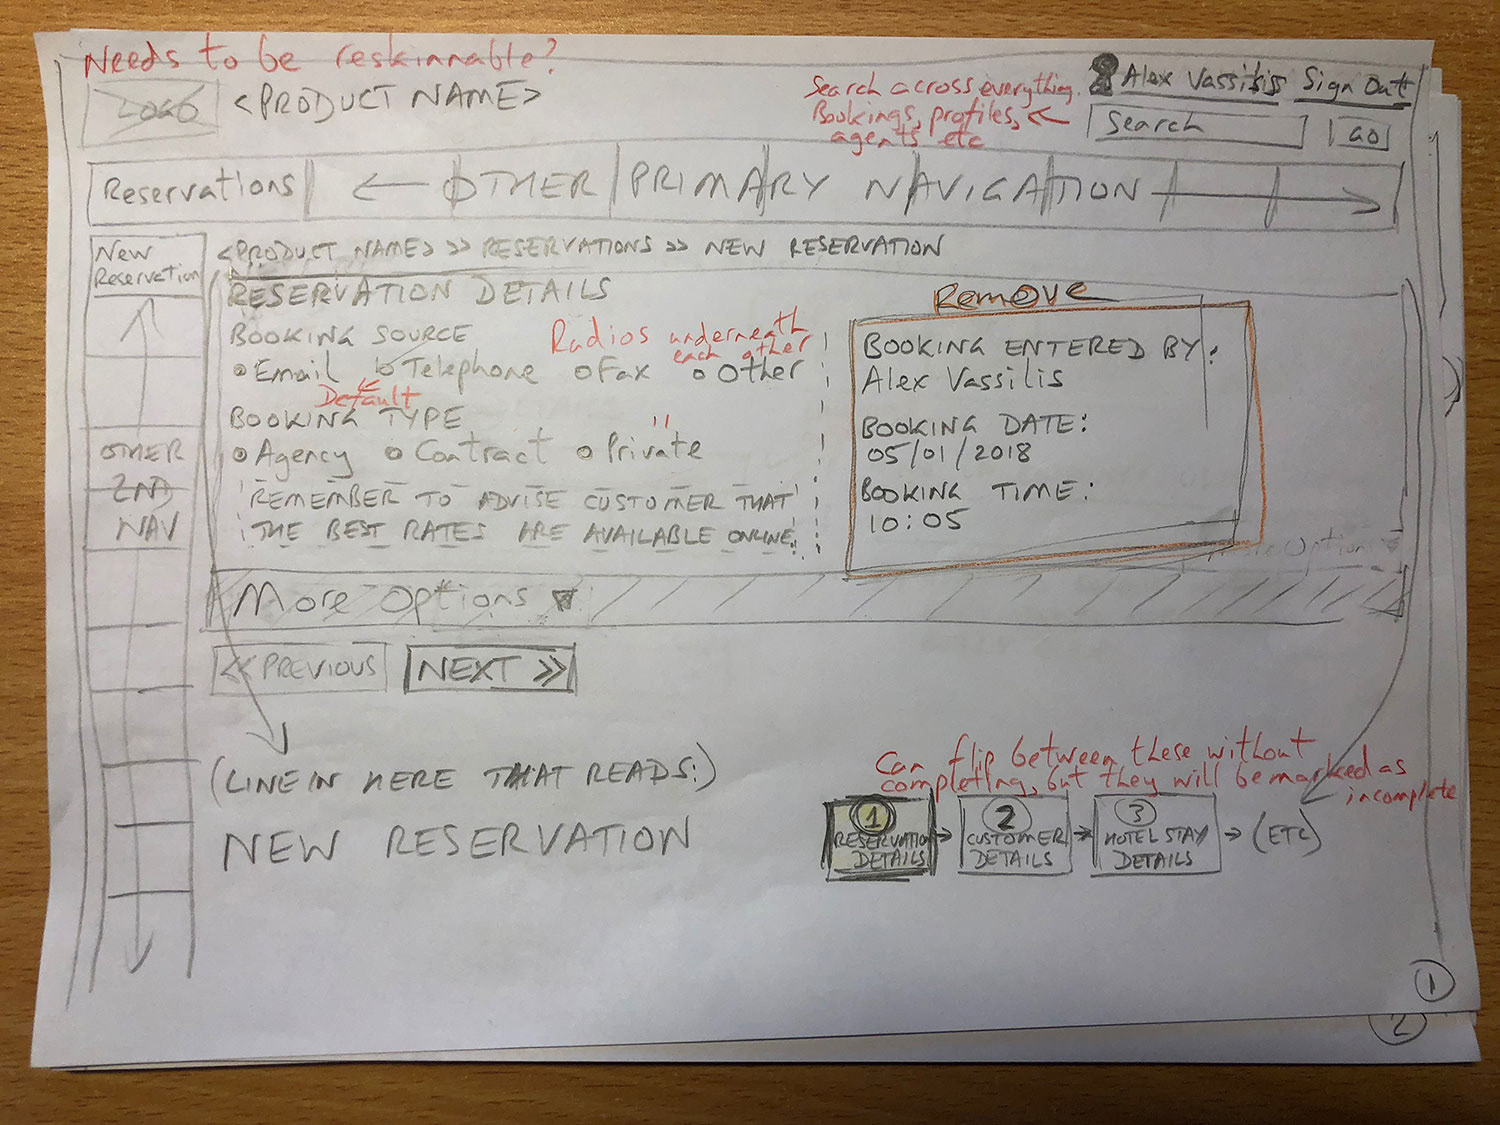 Needs to be reskinnable?
LOGO <PRODUCT NAME>
Search across everything.
Bookings, profiles,
agents etc
Alex Vassilis Sign Out
Search GO
Reservations ← OTHER PRIMARY NAVIGATION →
New
Reservation
OTHER
2ND
NAV
<PRODUCT NAME> >> RESERVATIONS >> NEW RESERVATION
RESERVATION DETAILS
BOOKING SOURCE
Radios underneath
each other
Email Telephone Fax Other
Default
BOOKING TYPE "
Agency Contract Private
REMEMBER TO ADVISE CUSTOMER THAT
THE BEST RATES ARE AVAILABLE ONLINE
Remove
BOOKING ENTERED BY:
Alex Vassilis
BOOKING DATE:
05/01/2018
BOOKING TIME:
10:05
Option
More Options ▼
<< PREVIOUS NEXT >>
(LINE IN HERE THAT READS:)
NEW RESERVATION
Can flip between these without
completing, but they will be marked as
incomplete
1 RESERVATION DETAILS → 2 CUSTOMER DETAILS → 3 HOTEL STAY DETAILS → (ETC)
1
2